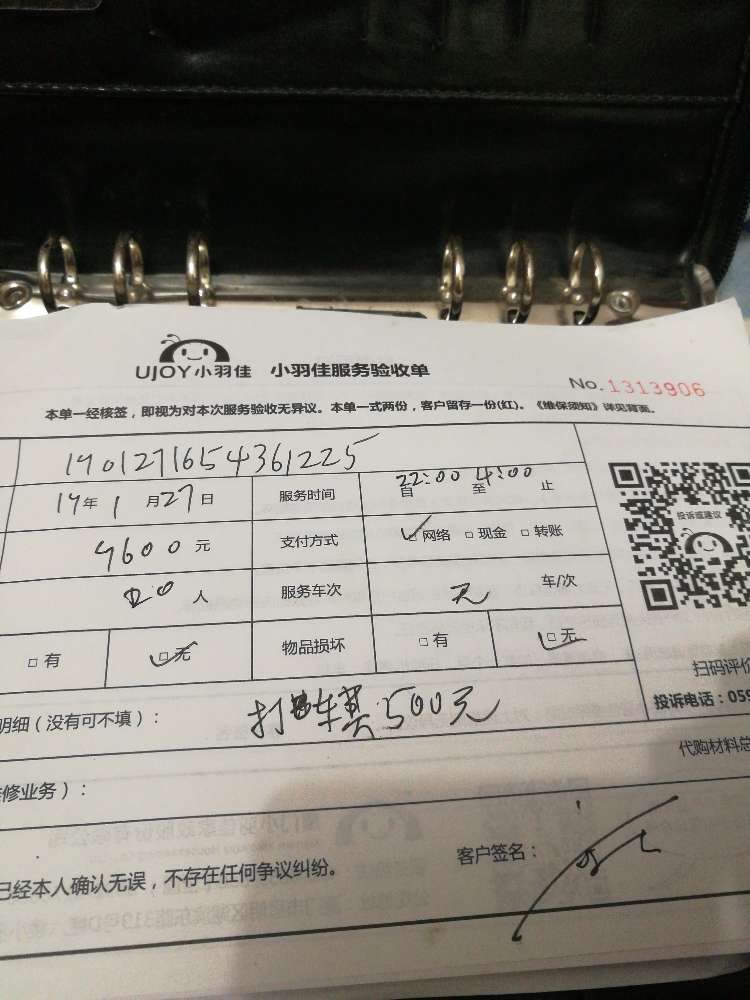 UJOY小羽佳 小羽佳服务验收单
No.1313906
本单一经核签，即视为对本次服务验收无异议。本单一式两份，客户留存一份(红)。《维保须知》详见背面。
1901271654361225
19年1月27日 服务时间 22:00自 4:00至 止
投诉或建议
4600元 支付方式 网络 现金 转账
20人 服务车次 无 车/次
有 无 物品损坏 有 无
扫码评价
明细（没有可不填）： 打车费500元
投诉电话：059
代购材料总
修业务）：
已经本人确认无误，不存在任何争议纠纷。 客户签名：